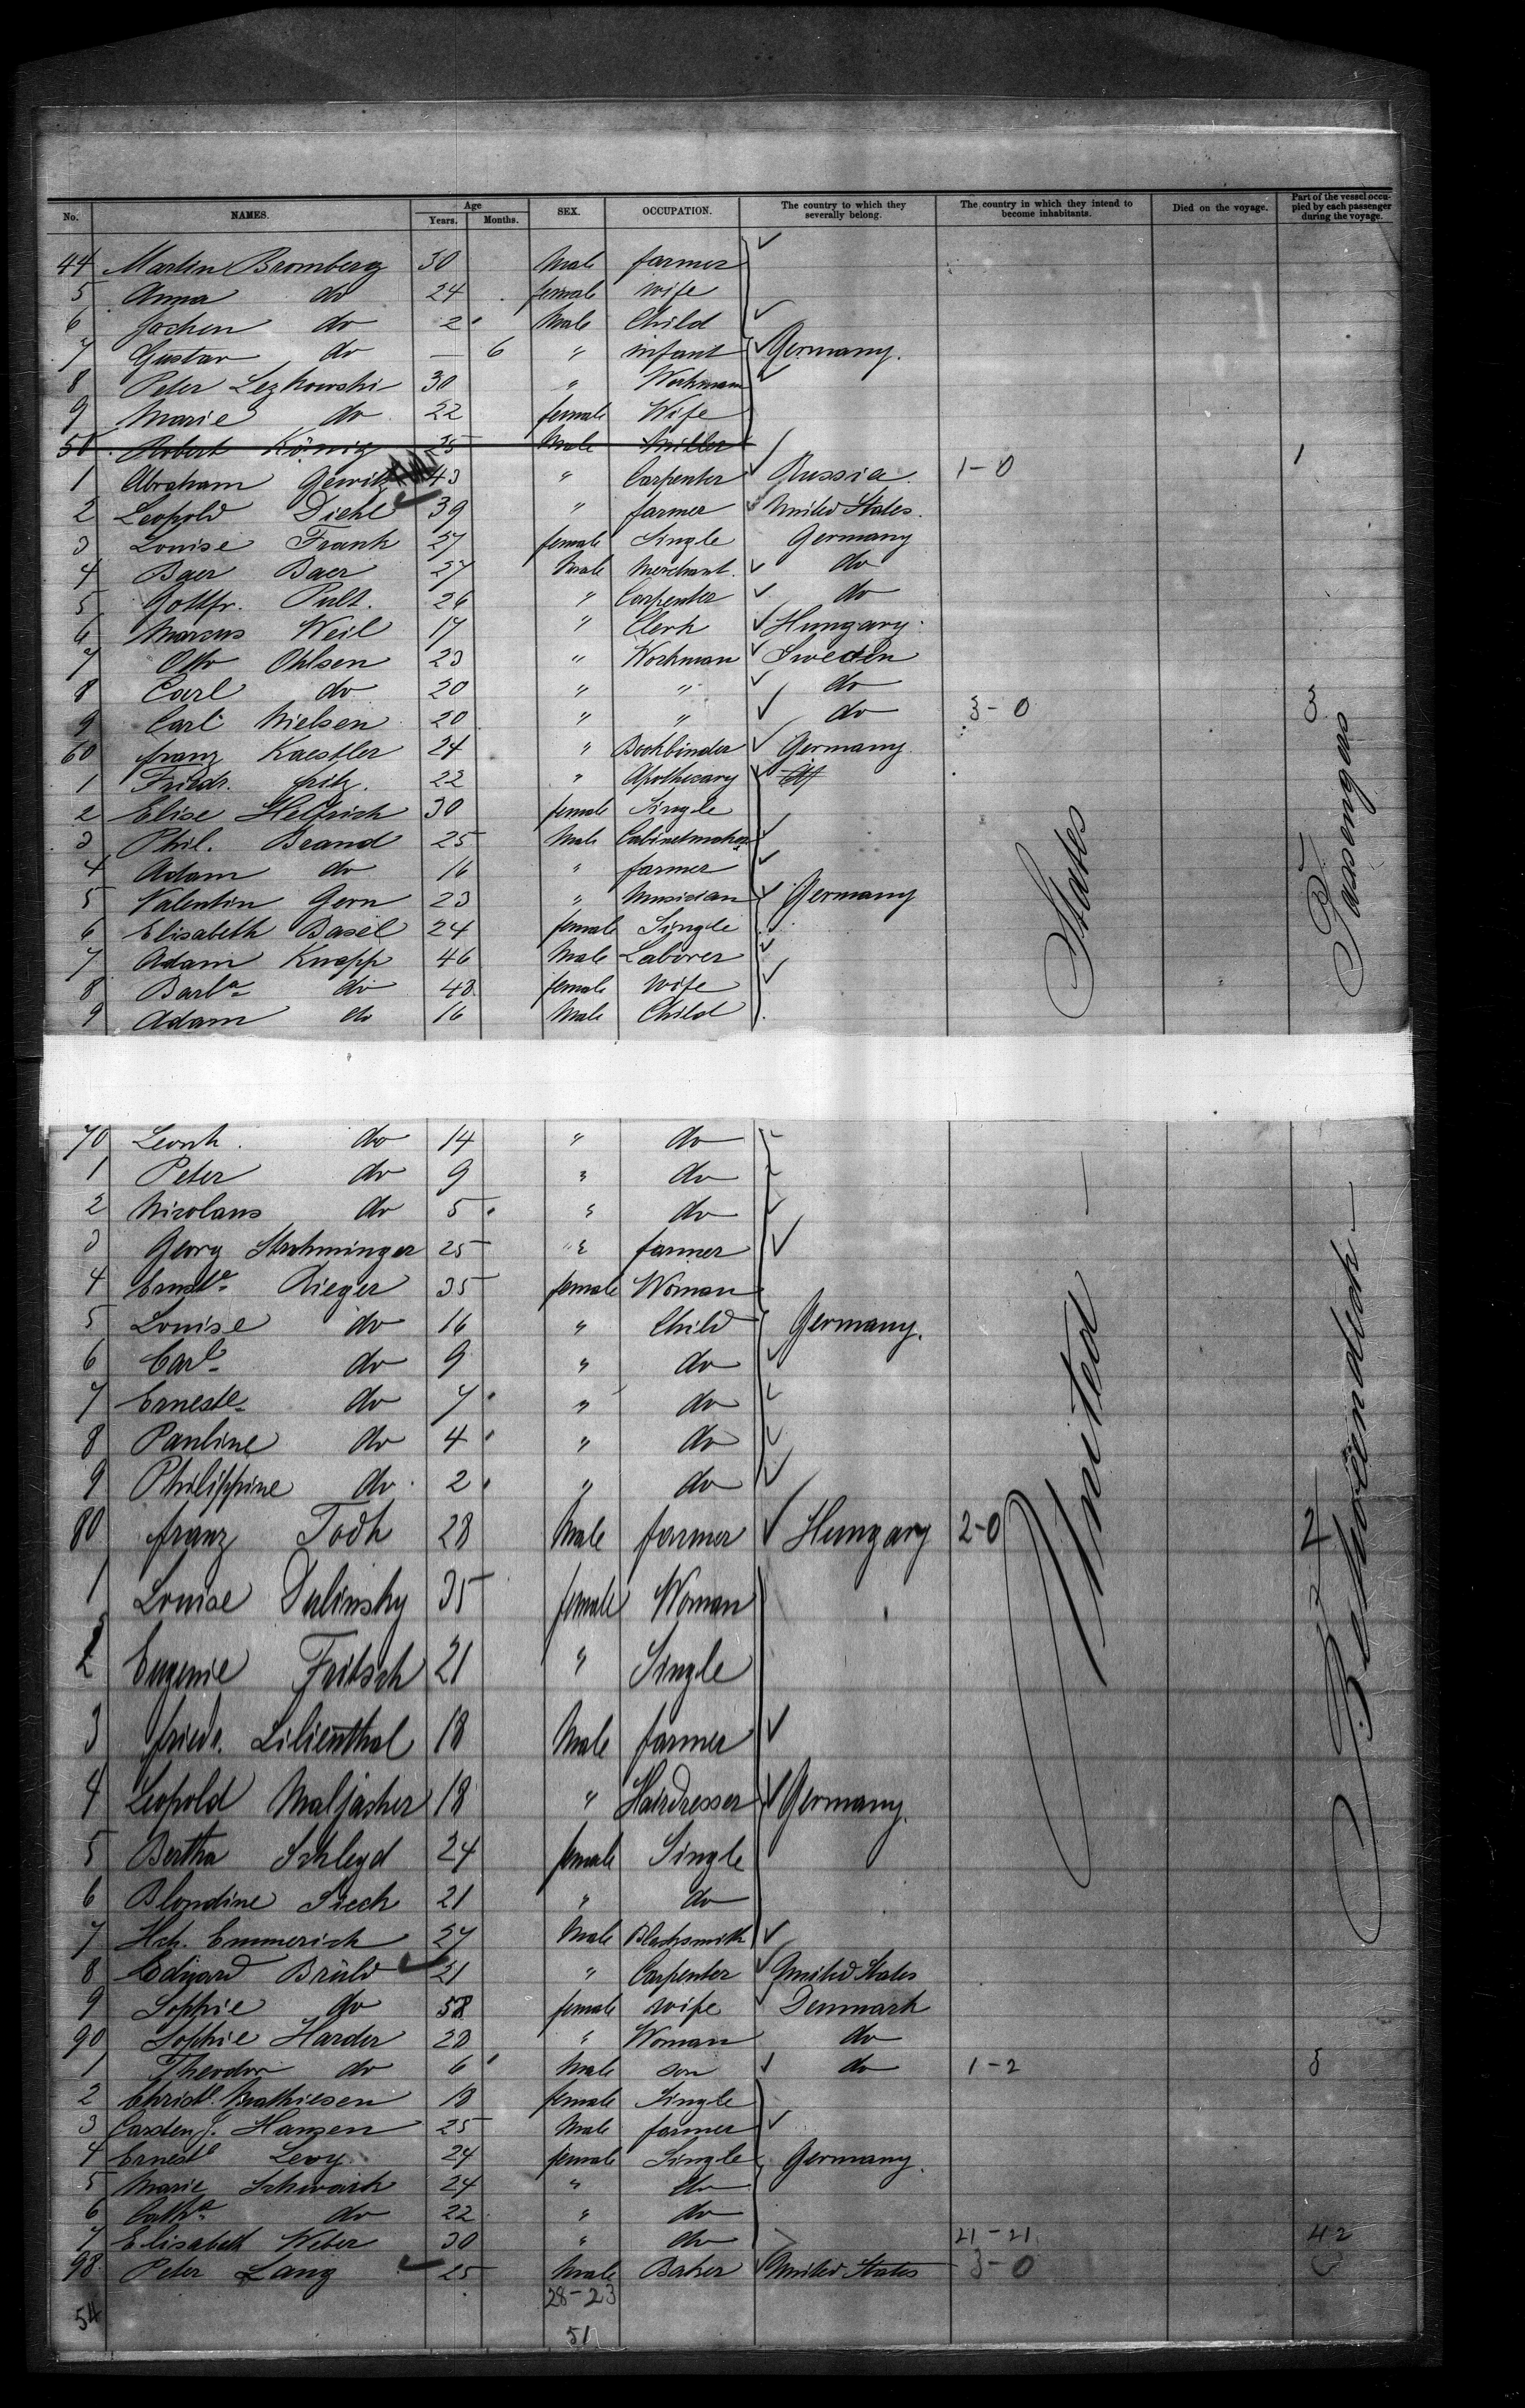 No. NAMES. Age Years. Months. SEX. OCCUPATION. The country to which they severally belong. The country in which they intend to become inhabitants. Died on the voyage. Part of the vessel occupied by each passenger during the voyage.
44 Martin Bromberg 30 Male farmer
5 Anna do 24 female wife
6 Jochen do 2 Male Child
7 Gustav do — 6 " infant Germany.
8 Peter Lezkowski 30 " Workman
9 Marie do 22 female Wife
50 Robert König 25 Male Miller
1 Abraham Gewitz 43 " Carpenter Russia 1-0 1
2 Leopold Diehl 39 " farmer United States.
3 Louise Frank 27 female Single Germany
4 Baer Baer 27 Male Merchant do
5 Gottfr. Pult. 26 " Carpenter do
6 Marcus Weil 17 " Clerk Hungary
7 Otto Ohlsen 23 " Workman Sweden
8 Carl do 20 " " do
9 Carl Nielsen 20 " " do 3-0 3
60 franz Kaestler 24 " Bookbinder Germany
1 Friedr. fritz. 22 " Apothecary
2 Elise Helfrich 30 female Single
3 Phil. Brand 25 Male Cabinetmaker
4 Adam do 16 " farmer
5 Valentin Gern 23 " Musician Germany
6 Elisabeth Basel 24 female Single
7 Adam Knapp 46 Male Laborer
8 Barba do 48 female wife
9 Adam do 16 Male Child
70 Leonh. do 14 " do
1 Peter do 9 " do
2 Nicolaus do 5 " do
3 Georg Strohminger 25 " farmer
4 Ernste Rieger 35 female Woman
5 Louise do 16 " Child Germany.
6 Carl do 9 " do
7 Erneste do 7 " do
8 Pauline do 4 " do
9 Philippine do 2 " do
80 franz Todh 28 Male farmer Hungary 2-0 2
1 Louise Dulinsky 35 female Woman
2 Eugenie Fritsch 21 " Single
3 friedr. Lilienthal 18 Male farmer
4 Leopold Maljacher 18 " Hairdresser Germany.
5 Bertha Schleyd 24 female Single
6 Blondine Siech 21 " do
7 Hch. Emmerich 27 Male Blacksmith
8 Eduard Brüld 21 " Carpenter United States
9 Sophie do 58 female wife Denmark
90 Sophie Harder 28 " Woman do
1 Theodor do 6 Male son do 1-2 3
2 Christe. Mathiesen 18 female Single
3 Carsten J. Hansen 25 Male farmer
4 Erneste Levy 24 female Single Germany.
5 Marie Schwarh 24 " do
6 Catha do 22 " do
7 Elisabeth Weber 30 " do 21-21 42
98 Peter Lang 25 Male Baker United States 3-0
28-23
54
51
United States
Passengers